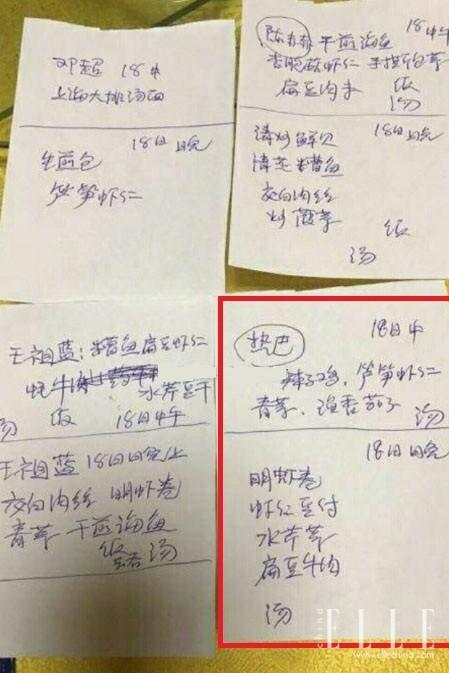 邓超 18中
上海大排汤面
18日 晚
生煎包
笋笋虾仁
18中午
干煎海鱼
扁豆肉丝 饭
汤
清炒鲜贝 18日 晚
清蒸糟鱼
茭白肉丝
炒菠菜
饭
汤
王祖蓝：糟鱼扁豆虾仁
水芹豆干
汤 饭 18日中午
王祖蓝 18日日晚上
茭白肉丝 明虾卷
青菜 干煎海鱼
饭
汤
18日中
热巴
辣子鸡、笋笋虾仁
青菜、鱼香茄子 汤
18日日晚
明虾卷
虾仁豆付
水芹菜
扁豆牛肉
汤
ELLE
china
www.ellechina.com